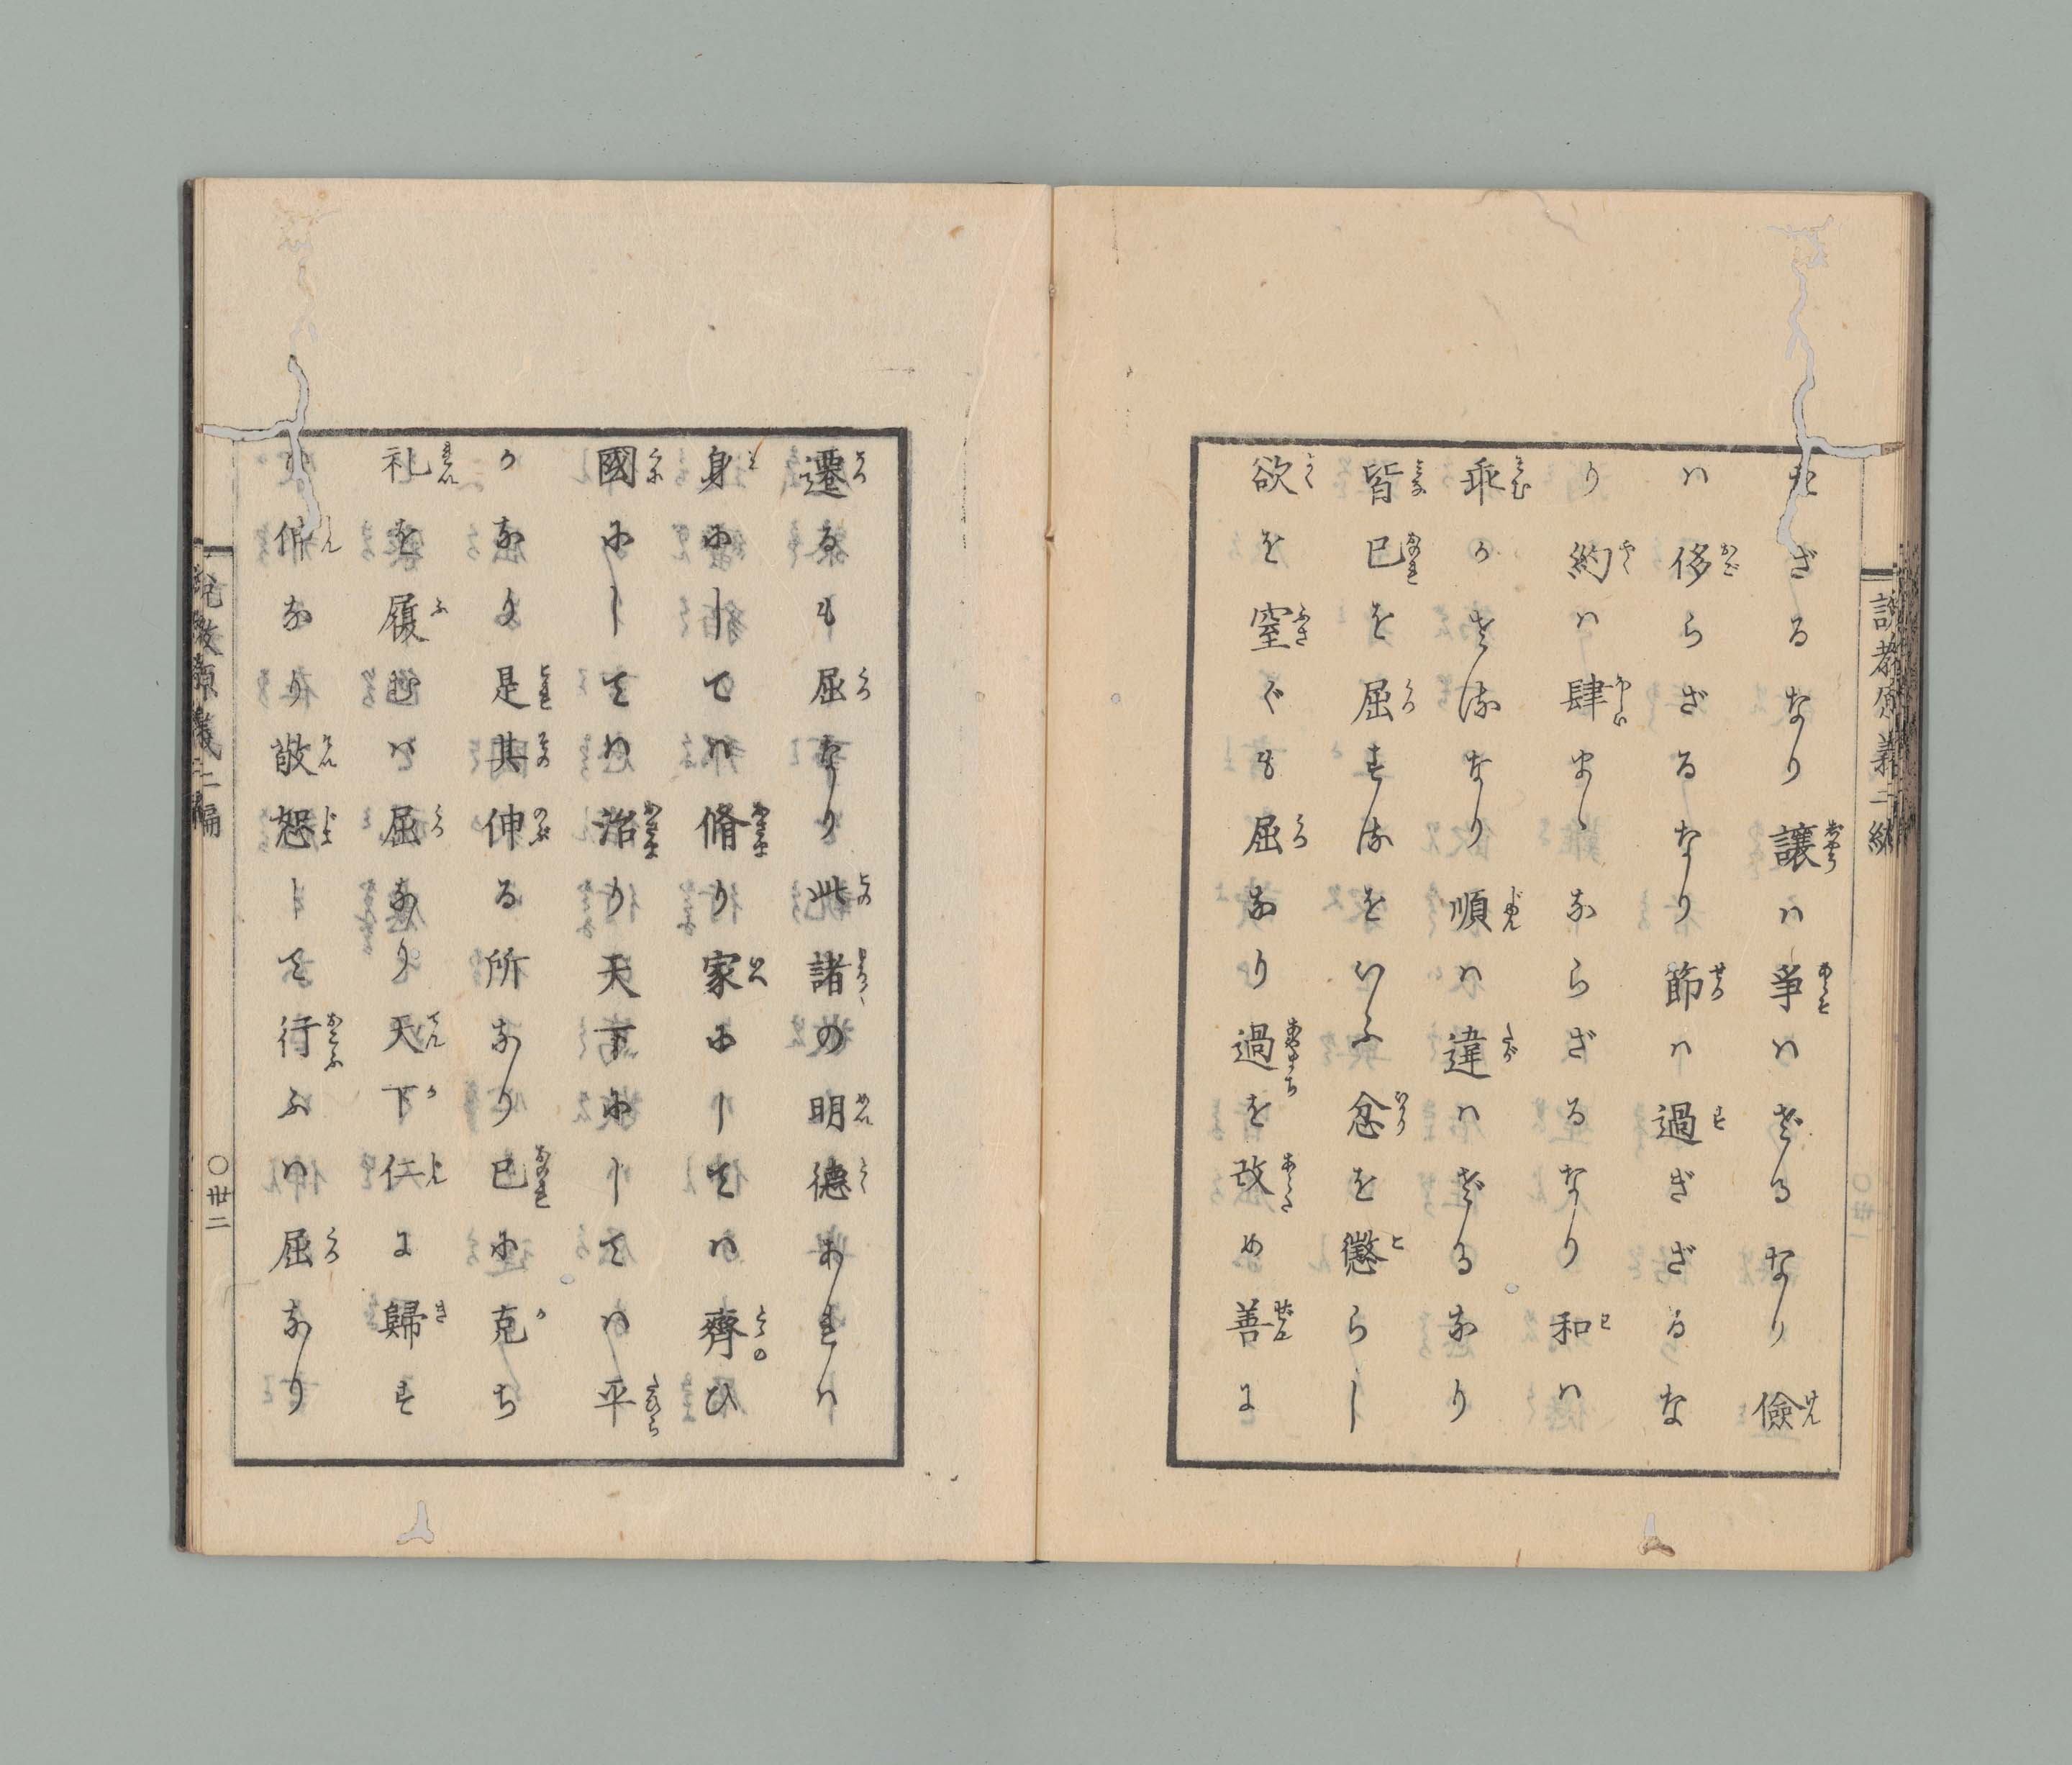 ざるなり讓ハ爭ハざるなり儉
ハ侈らざるなり節ハ過ぎざるな
り約ハ肆まゝならざるなり和ハ
乖かざるなり順ハ違ハざるなり
皆己を屈するをいふ忿を懲らし
欲を窒ぐも屈なり過を改め善に
遷るも屈なり此諸の明德あれハ
身にしてハ脩り家にしてハ齊ひ
國にしてハ治り天下にしてハ平
かなり是其伸る所なり己に克ち
礼を履むハ屈なり天下仁に歸す
伸なり敬恕して行ふハ屈なり
説教原義二編
説教原義二編
〇卅二